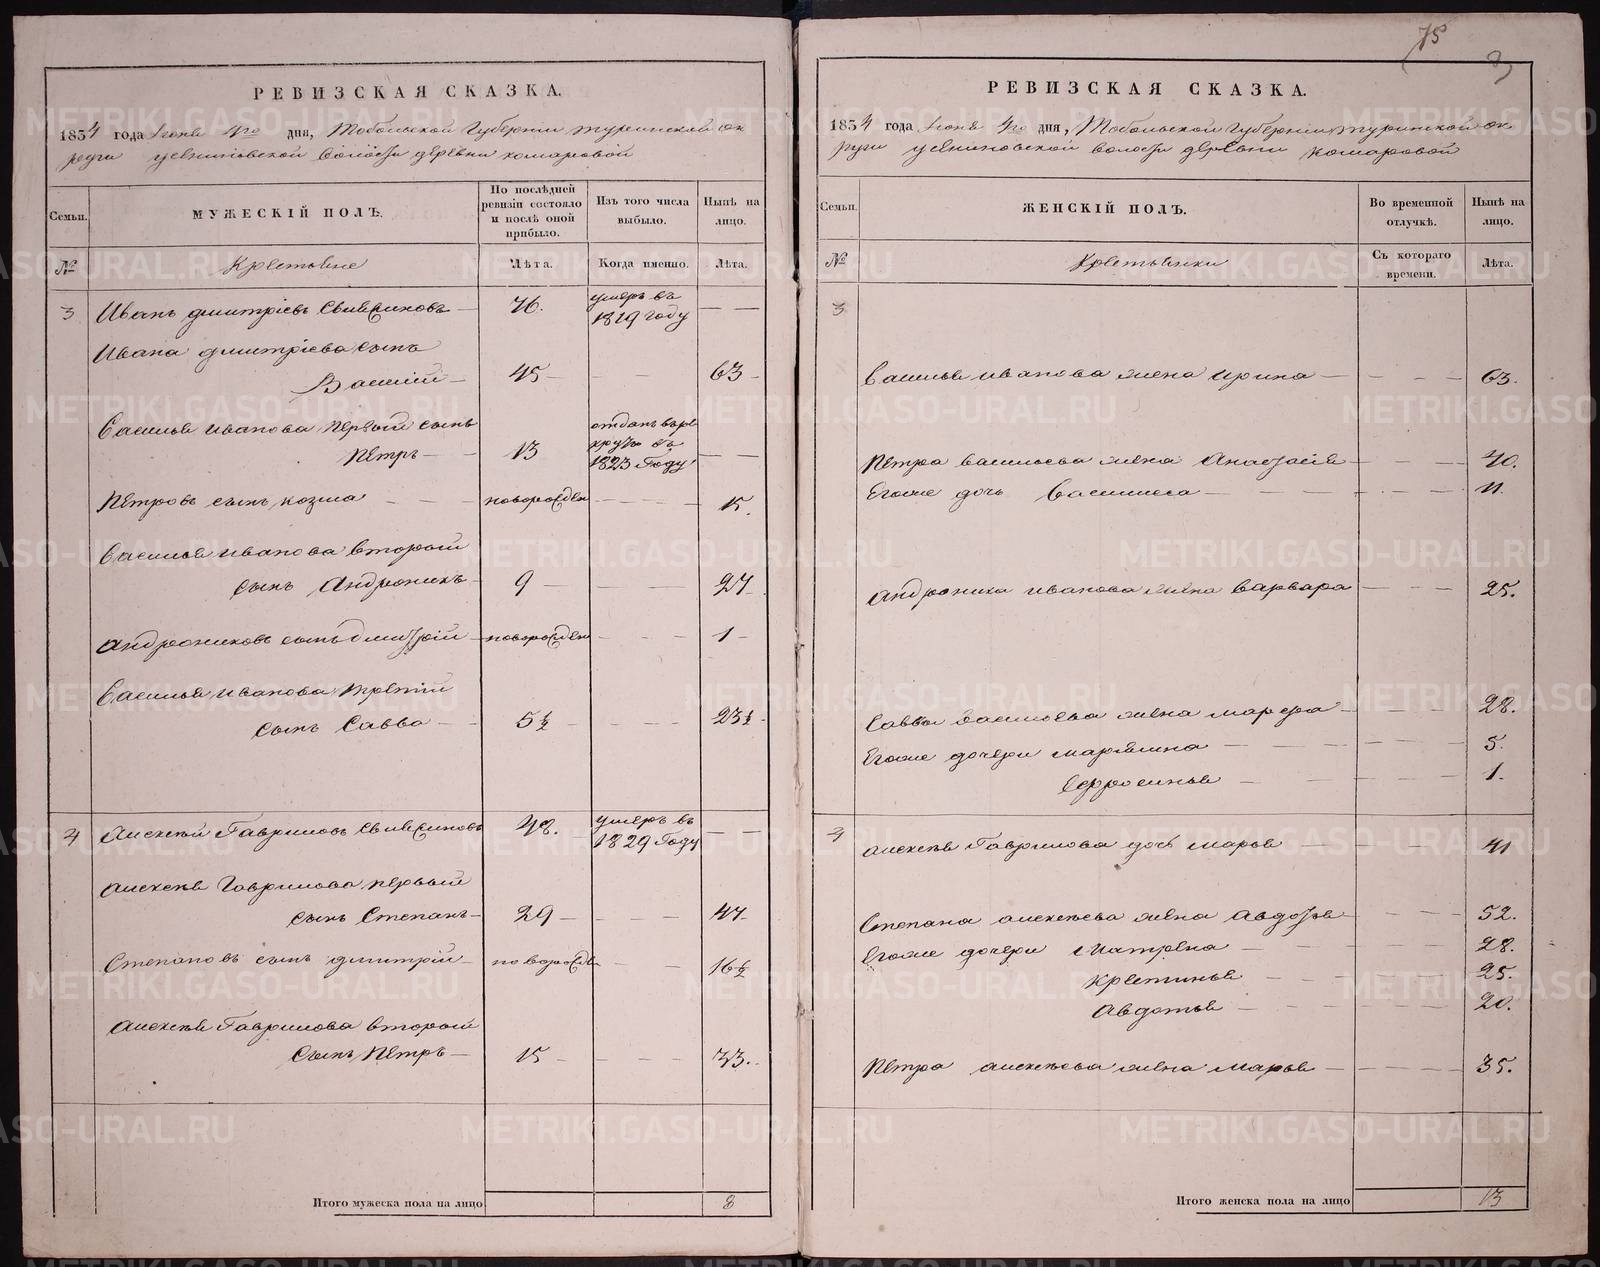 РЕВИЗСКАЯ СКАЗКА.
1834 года Июня 4го дня, Тобольской Губернии Туринской ок
руги волости деревни Комаровой
Семьи.
МУЖЕСКІЙ ПОЛЪ.
По послѣдней
ревизіи состояло
и послѣ оной
прибыло.
Изъ того числа
выбыло.
Нынѣ на
лицо.
№
Крестьяне
Лѣта.
Когда именно.
Лѣта.
3 Иванъ Дмитріевъ 76. умеръ въ
1819 году
Ивана Дмитріева сынъ
Василій 45 63
Василья Иванова первой сынъ
Петръ 13 отданъ въ ре
круты въ
1823 Году
Петровъ сынъ Козма новорожден 15.
Василья Иванова второй
сынъ Андроникъ 9 27
Андрониковъ сынъ Дмитрій новорожден 1
Василья Иванова третій
сынъ Савва 5½ 23½
4 Алексѣй Гавриловъ 48. умеръ въ
1829 Году
Алексѣя Гаврилова первый
сынъ Степанъ 29 47
Степановъ сынъ Дмитрій новорожде 16½
Алексѣя Гаврилова второй
сынъ Петръ 15 33.
Итого мужеска пола на лицо 8
75
РЕВИЗСКАЯ СКАЗКА.
1834 года Июня 4го дня, Тобольской Губернии Туринской ок
руги волости деревни Комаровой
Семьи.
ЖЕНСКІЙ ПОЛЪ.
Во временной
отлучкѣ.
Нынѣ на
лицо.
№
Крестьянки
Съ котораго
времени.
Лѣта.
3
Василья Иванова жена Ирина 63.
Петра Васильева жена Анастасія 40.
Егоже дочь Василиса 11
Андроника Иванова жена Варвара 25.
Саввы Васильева жена Марфа 28.
Егоже дочери Марямна 5.
Ефросинья 1.
4 Алексѣя Гаврилова дочь Марья 41
Степана Алексѣева жена Авдотья 52.
Егоже дочери Матрена 28.
Крестинья 25.
Авдотья 20.
Петра Алексѣева жена Марья 35.
Итого женска пола на лицо 13
METRIKI.GASO-URAL.RU